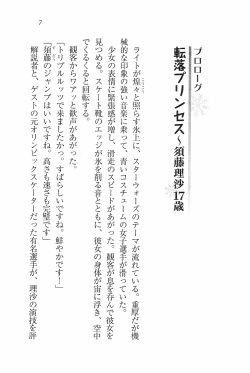 7
プロローグ
転落プリンセス～須藤理沙17歳
ライトが煌々と照らす氷上に、スターウォーズのテーマが流れている。重厚だが機
械的な印象の強い音楽に乗って、青いコスチュームの女子選手が滑っていた。
少女の表情に緊張感が増し、滑走のスピードがあがった。観客が息を呑んで彼女を
見つめる。スケート靴のエッジが氷を削る音とともに、彼女の身体が宙に浮き、空中
でくるくると回転する。
観客からワアッと歓声があがった。
「トリプルルッツで来ましたかっ。すばらしいですね。鮮やかです！」
「須藤のジャンプはいいですね。高さも速さも完璧です」
解説者と、ゲストの元オリンピックスケーターだった有名選手が、理沙の演技を評